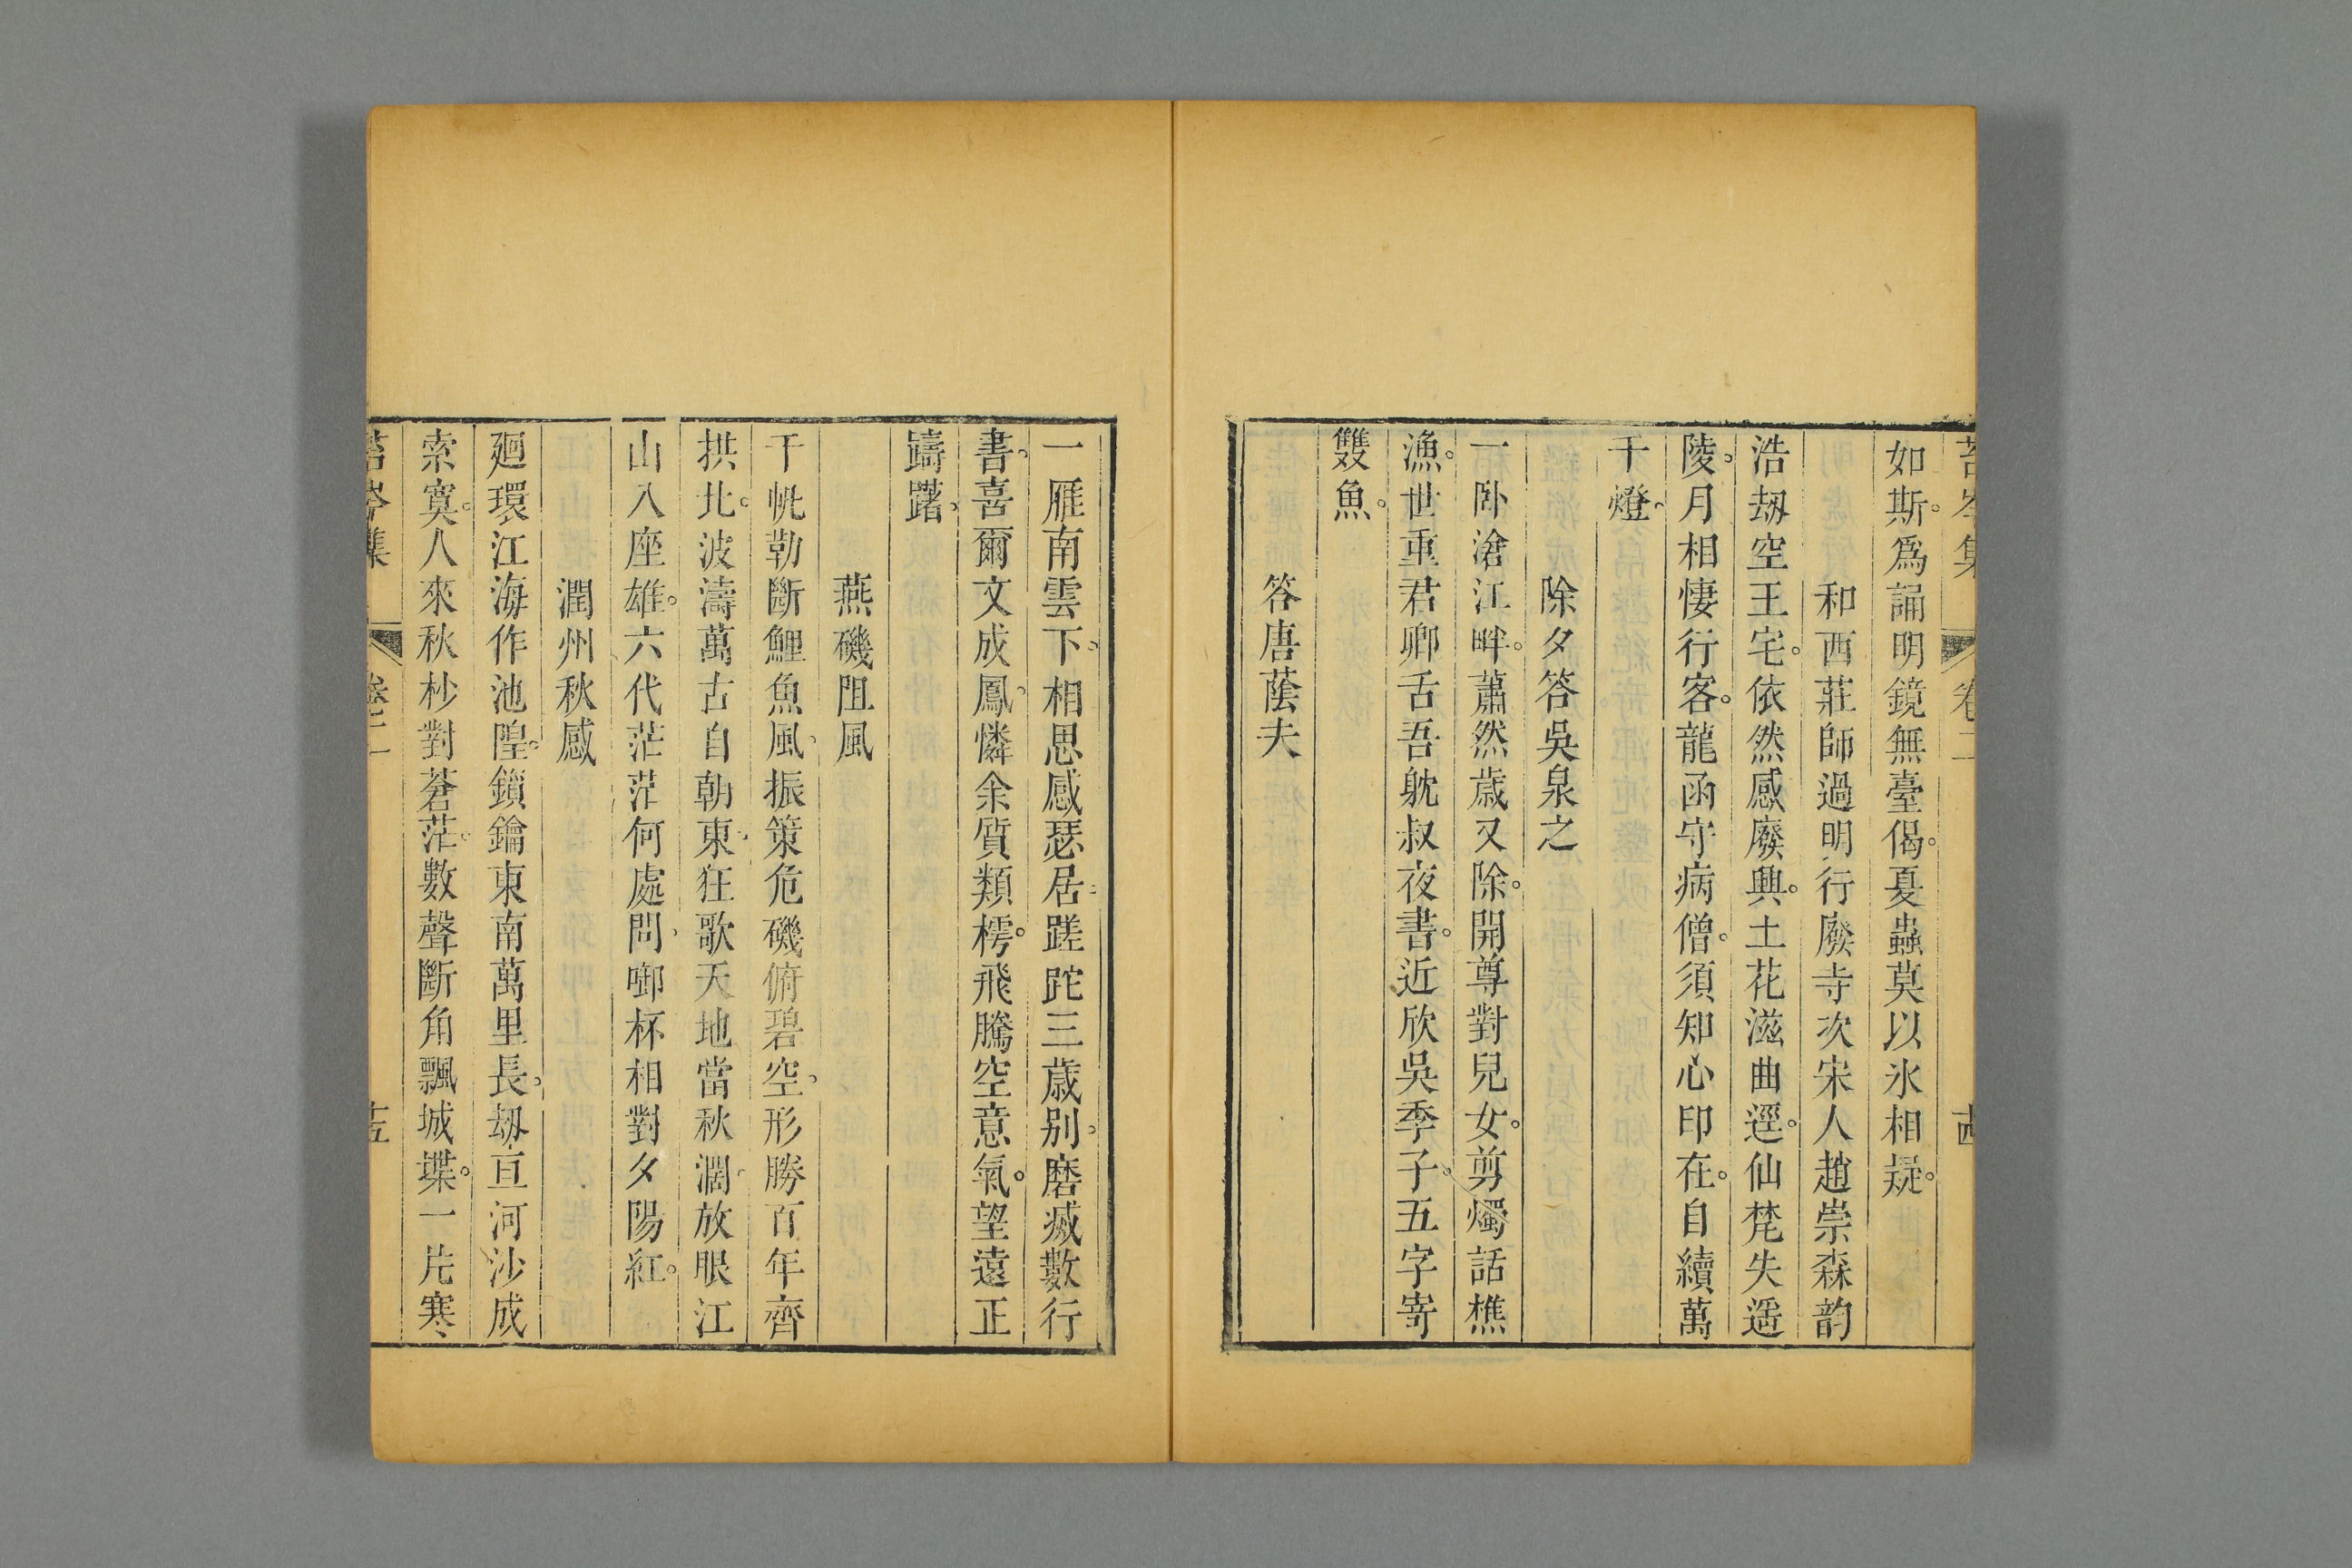 苔岑集 卷二 十四
如斯。爲誦明鏡無臺偈。夏蟲莫以氷相疑。
和西莊師過明行廢寺次宋人趙崇森韵
浩劫空王宅。依然感廢興。土花滋曲逕。仙梵失遥
陵。月相悽行客。龍函守病僧。須知心印在。自續萬
千燈。
除夕答吳泉之
一卧滄江畔。蕭然歲又除。開尊對兒女。剪燭話樵
漁。世重君卿舌。吾躭叔夜書。近欣吳季子。五字寄
雙魚。
答唐蔭夫
一雁南雲下。相思感瑟居。蹉跎三歲别。磨滅數行
書。喜爾文成鳳。憐余質類樗。飛騰空意氣。望遠正
躊躇。
燕磯阻風
千帆勒斷鯉魚風。振策危磯俯碧空。形勝百年齊
拱北。波濤萬古自朝東。狂歌天地當秋濶。放眼江
山入座雄。六代茫茫何處問。啣杯相對夕陽紅。
潤州秋感
廻環江海作池隍。鎖鑰東南萬里長。劫亘河沙成
索寞。人來秋杪對蒼茫。數聲斷角飄城堞。一片寒
苔岑集 卷二 十五